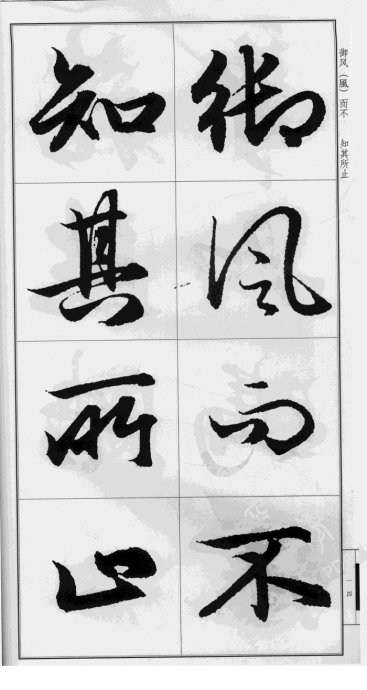 御风而不
知其所止
御风（風）而不 知其所止
一四